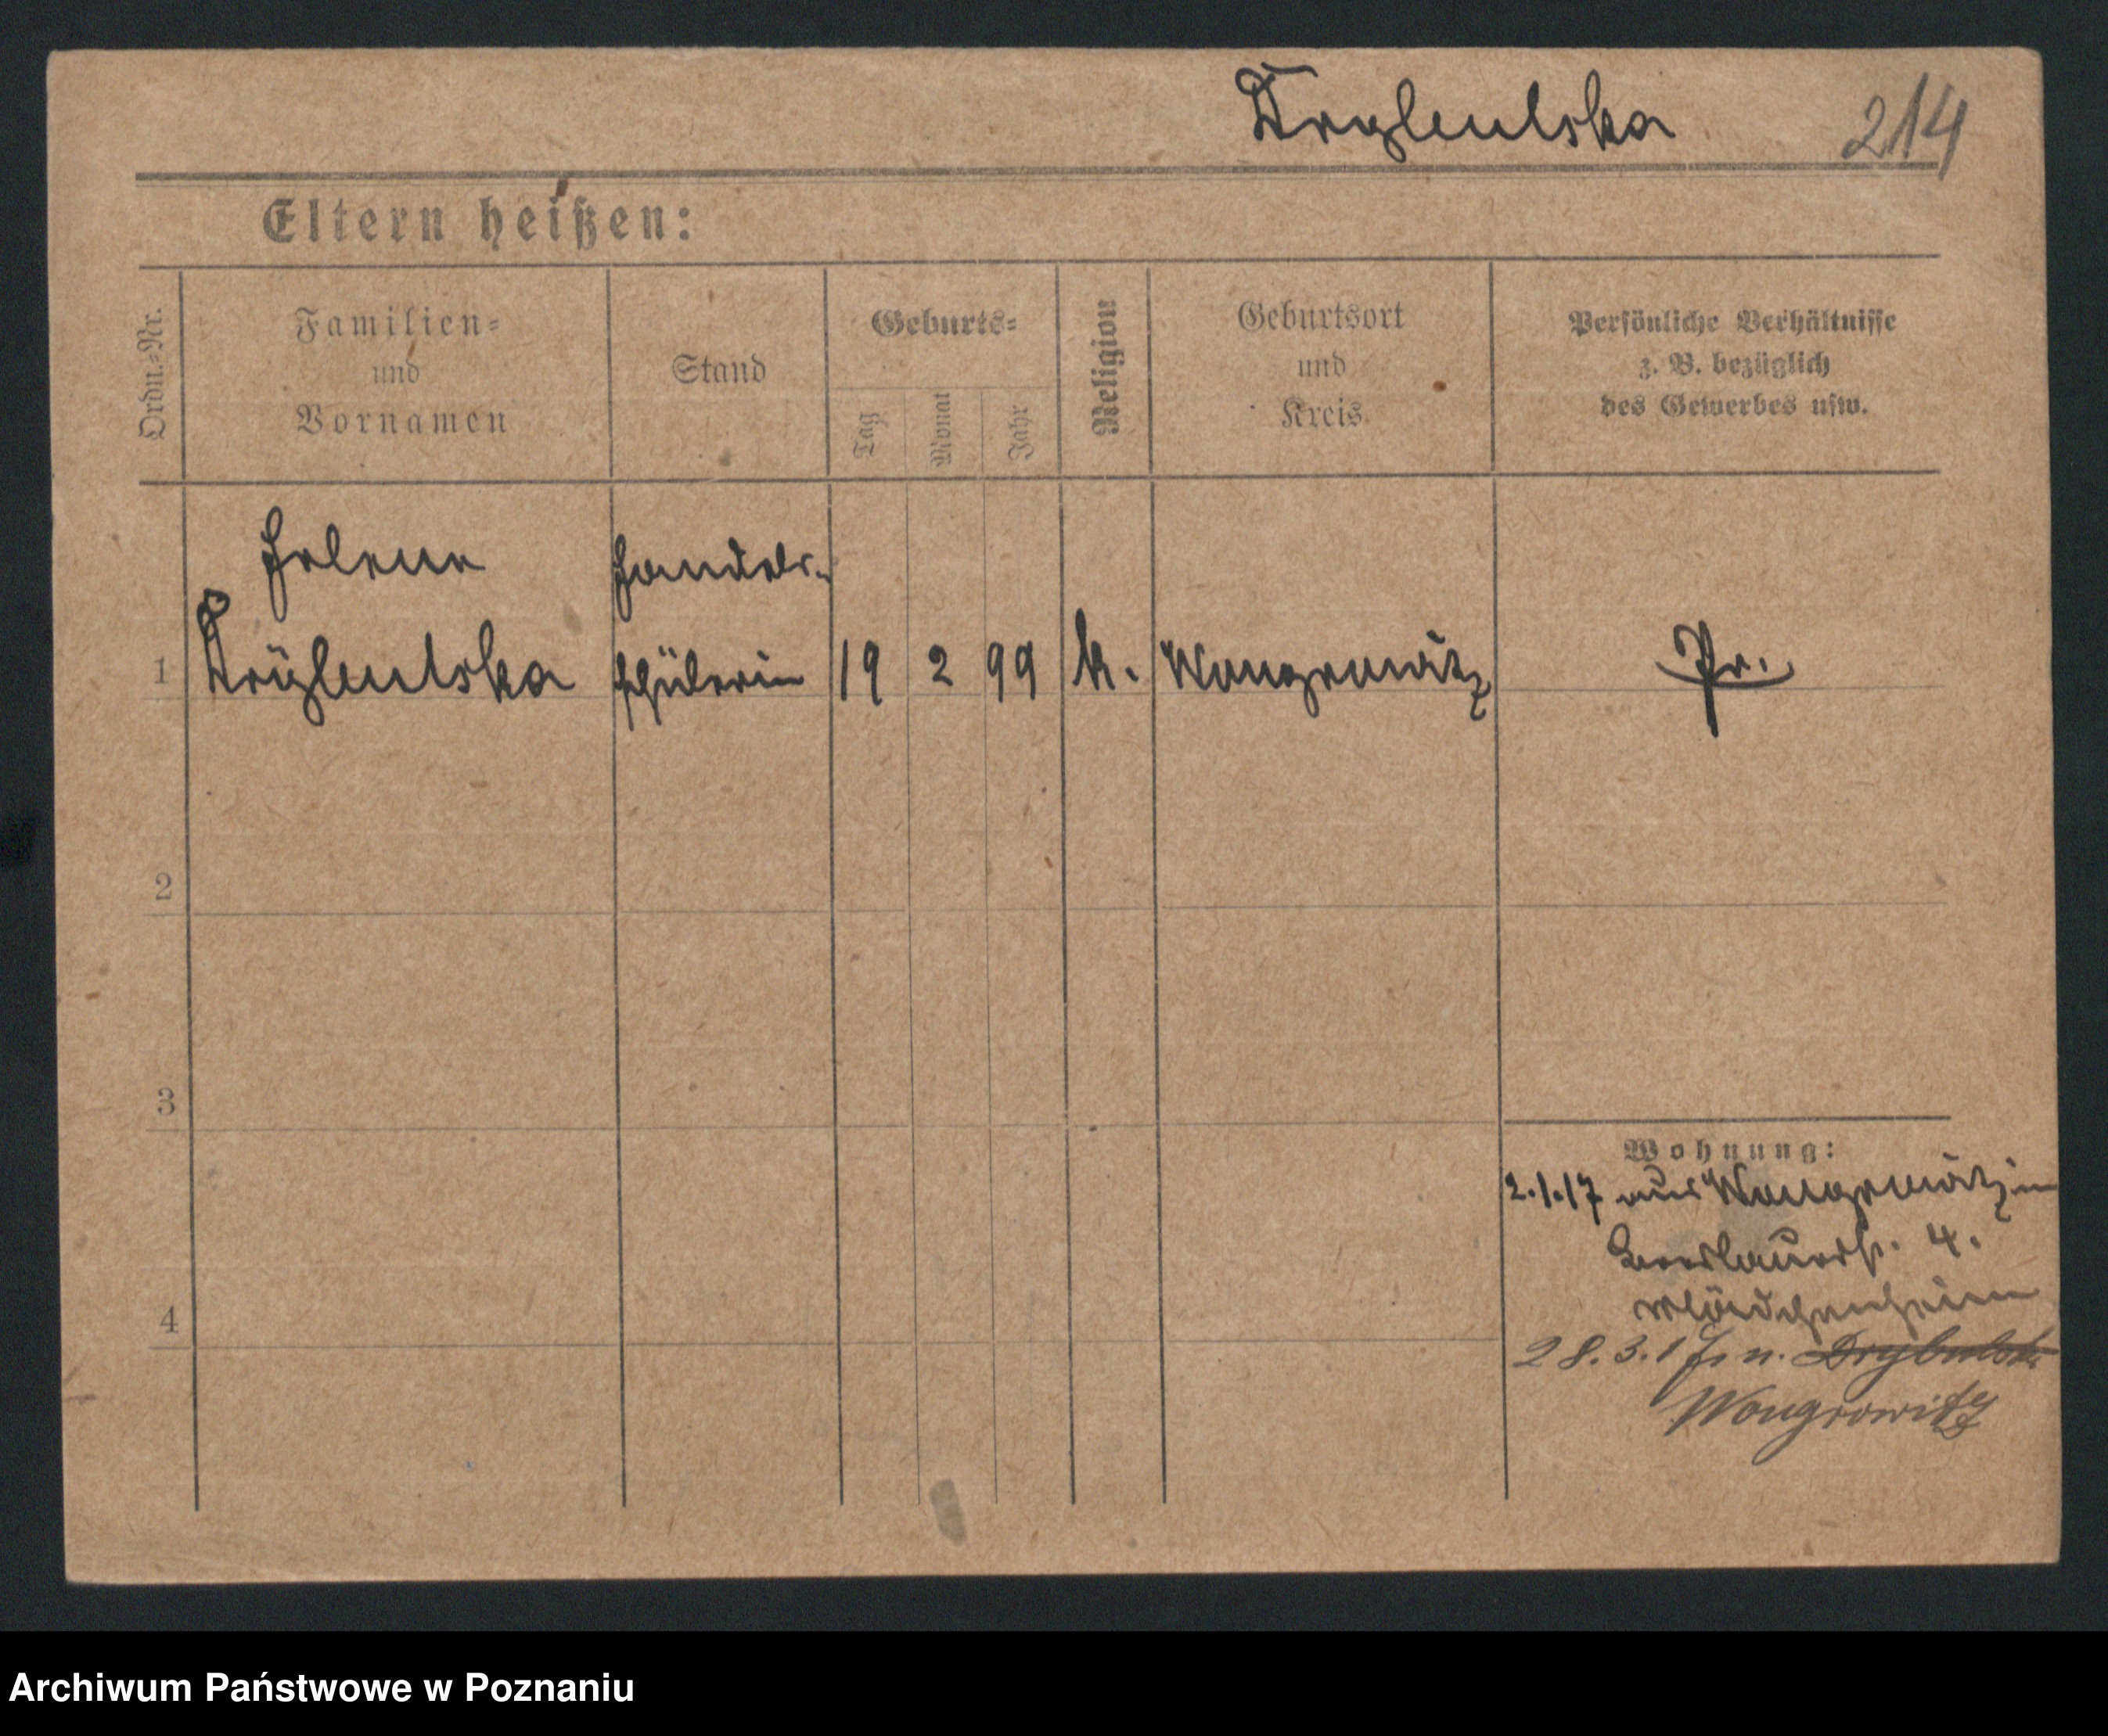 Drybulska 214
Eltern heißen:
Ordn.-Nr.
Familien-
und
Vornamen
Stand
Geburts-
Tag
Monat
Jahr
Religion
Geburtsort
und
Kreis
Persönliche Verhältnisse
z. B. bezüglich
des Gewerbes usw.
Helena Handels-
1 Drybulska schülerin 19 2 99 k. Wongrowitz Pr.
2
3
Wohnung:
2.1.17 aus Wongrowitz in
Breslauerstr. 4.
Mädchenheim
4
28.3.17 n. Drybulska
Wongrowitz
Archiwum Państwowe w Poznaniu